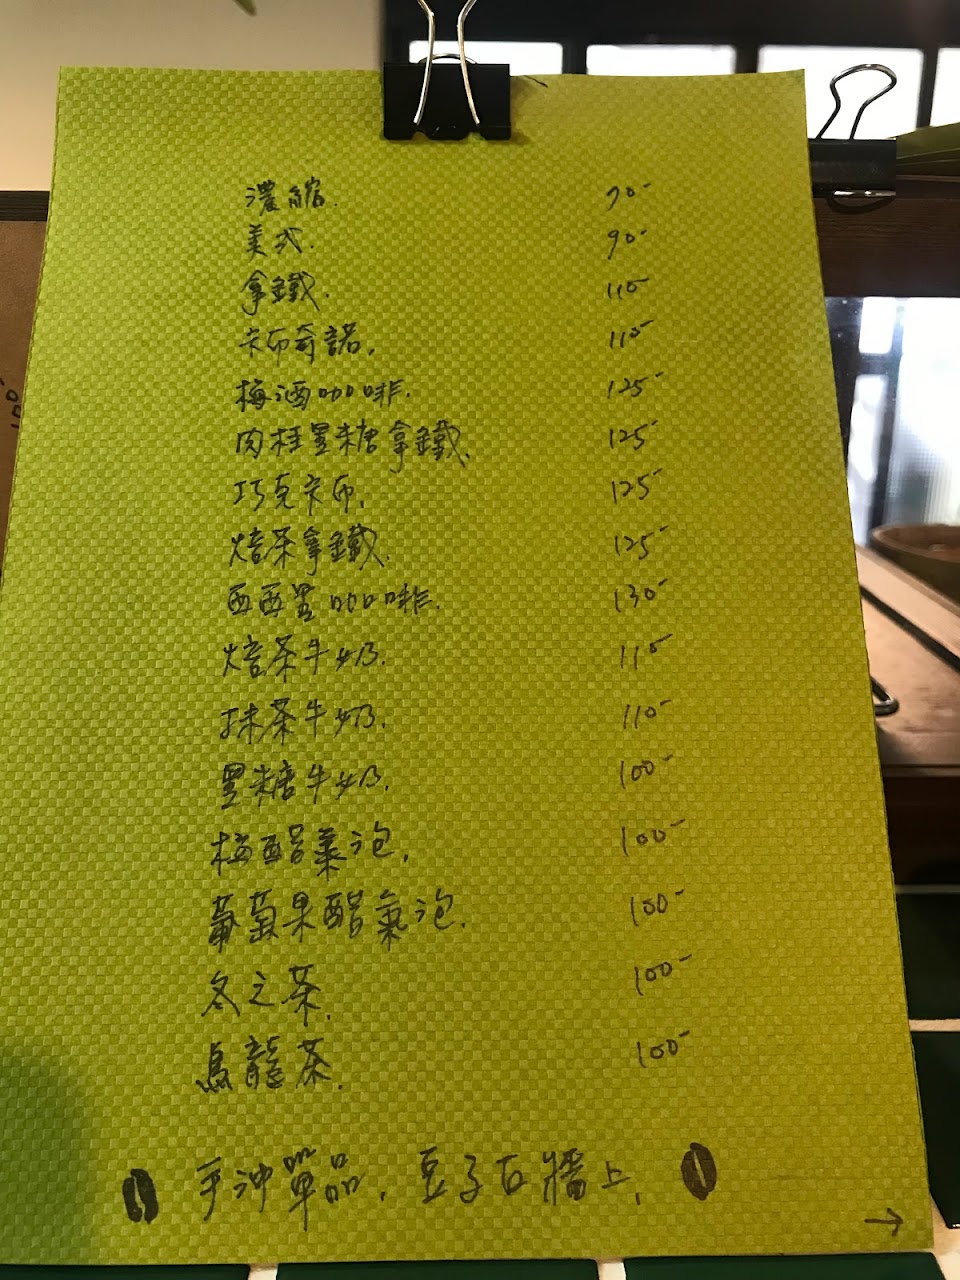 濃縮. 70-
美式. 90-
拿鐵. 110-
卡布奇諾. 110-
梅酒咖啡. 125-
肉桂黑糖拿鐵. 125-
巧克卡布. 125-
焙茶拿鐵. 125-
西西里咖啡. 130-
焙茶牛奶. 110-
抹茶牛奶. 110-
黑糖牛奶. 100-
梅醋氣泡. 100-
葡萄果醋氣泡. 100-
冬之茶. 100-
烏龍茶. 100-
手沖單品, 豆子在牆上.
→